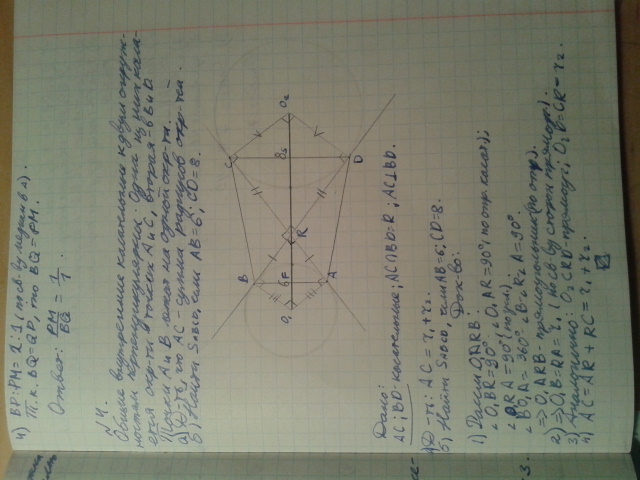 4) BP:PM = 2:1 (по св. ву медиан в Δ).
Т.к. BQ=QD, то BQ=PM.
Ответ: PM/BQ = 1/1.
№4.
Общие внутренние касательные к двум окруж-
ностям перпендикулярны. Одна из них каса-
ется окр-ти в точках A и C, вторая - в B и D.
Точки A и B лежат на одной окр-ти.
а) Д-ть, что AC - сумма радиусов окр-тей.
б) Найти SABCD, если AB=6; CD=8.
C
O2
B
8
S
R
D
6
P
O1
A
Дано:
AC; BD - касательные; AC∩BD=R; AC⊥BD.
а) Д-ть: AC = r1 + r2.
б) Найти SABCD, если AB=6; CD=8.
Док-во:
1) Рассм O1ARB:
∠O1BR=90°; ∠O1AR=90° (по опр. касат);
∠BRA=90° (по усл)
∠BO1A = 360° - ∠B - ∠R - ∠A = 90°
=> O1ARB - прямоугольник (по опр).
2) => O1B=RA=r1 (по св ву сторон прямоуг).
3) Аналогично: O2CRD - прямоуг; O2D=CR=r2.
4) AC=AR+RC=r1+r2.